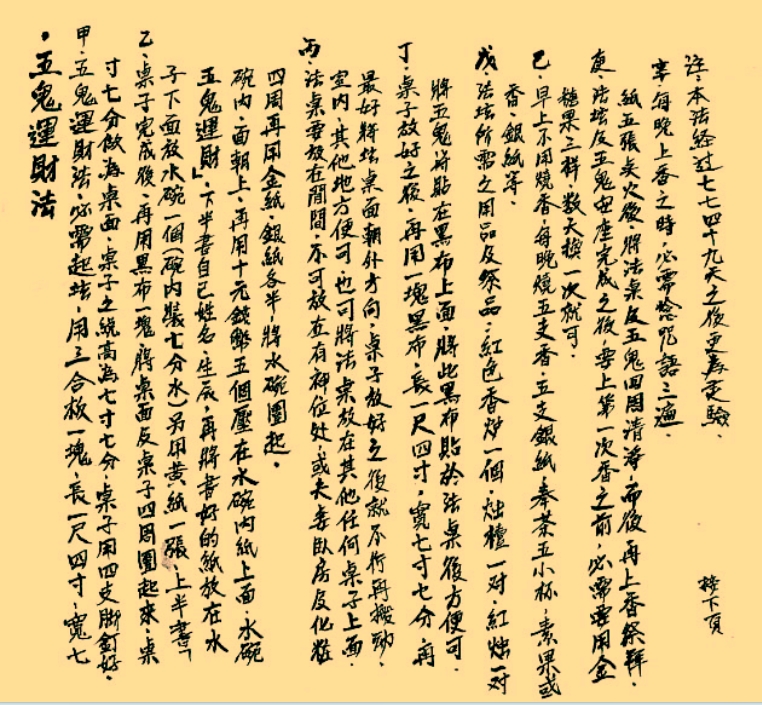 ・五鬼運財法
甲・五鬼運財法,必需起坛,用三合板一塊,長一尺四寸,寬七
寸七分做為桌面,桌子之総高為七寸七分,桌子用四支脚釘好.
乙・桌子完成後,再用黑布一塊,將桌面及桌子四周圍起來,桌
子下面放水碗一個(碗内裝七分水)另用黄紙一張,上半書「
五鬼運財」,下半書自己姓名,生辰,再將書好的紙放在水
碗内,面朝上,再用十元錢幣五個壓在水碗内紙上面,水碗
四周再用金紙,銀紙各半,將水碗圍起.
丙・法桌要放在閒間,不可放在有神位处,或夫妻臥房及化粧
室内,其他地方便可,也可將法桌放在其他任何桌子上面,
最好將坛桌面朝外方向,桌子放好之後就不行再搬動.
丁・桌子放好之後,再用一塊黑布,長一尺四寸,寬七寸七分,再
將五鬼符貼在黑布上面,將此黑布貼於法桌後方便可.
戊・法坛所需之用品及祭品,紅色香炉一個,烛檯一对,紅烛一对
香,銀紙等.
己・早上不用燒香,每晚燒五支香,五支銀紙,奉茶五小杯,素果或
糖果三样,数天換一次就可.
庚・法坛及五鬼安座完成之後,要上第一次香之前,必需要用金
紙五張火後,將法桌及五鬼四周清淨,而後再上香祭拜.
辛・每晚上香之時,必需唸咒語三遍.
注・本法経过七七四十九天之後更為灵驗.
接下頁